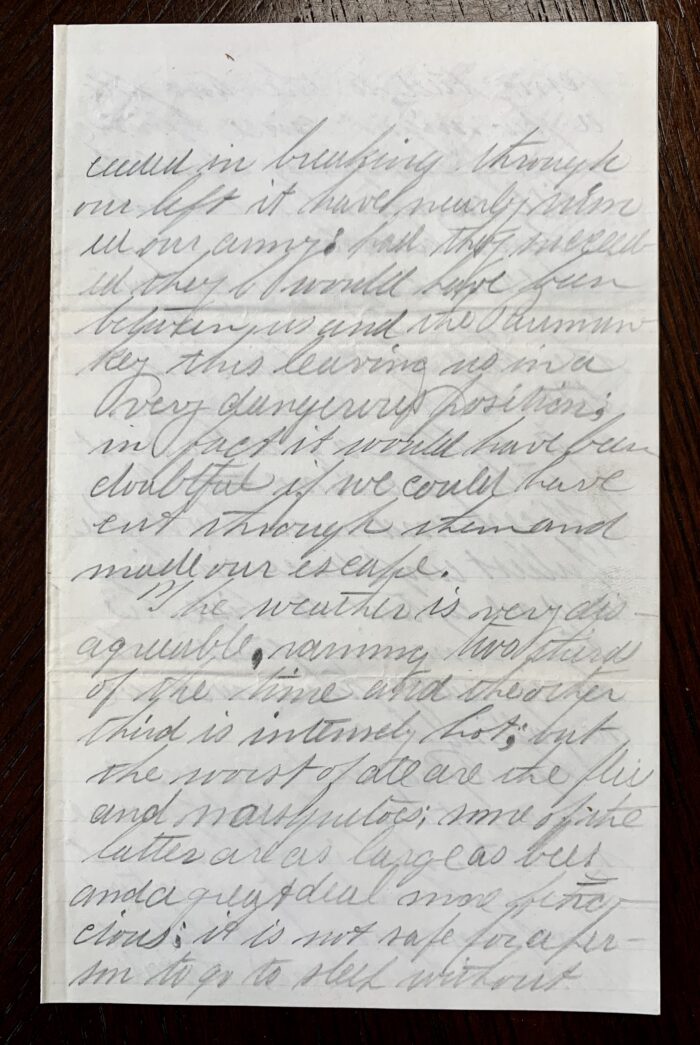 ceeded in breaking through
our left it have nearly ruin
ed our army; had they succeed
ed they would have been
between us and the Paumun
key this leaving us in a
very dangerous position;
in fact it would have been
doubtful if we could have
cut through them and
made our escape.
The weather is very dis-
agreeable, raining two thirds
of the time and the other
third is intensely hot; but
the worst of all are the flies
and mosquetoes; some of the
latter are as large as bees
and a great deal more feroc-
cious; it is not safe for a per-
son to go to sleep without